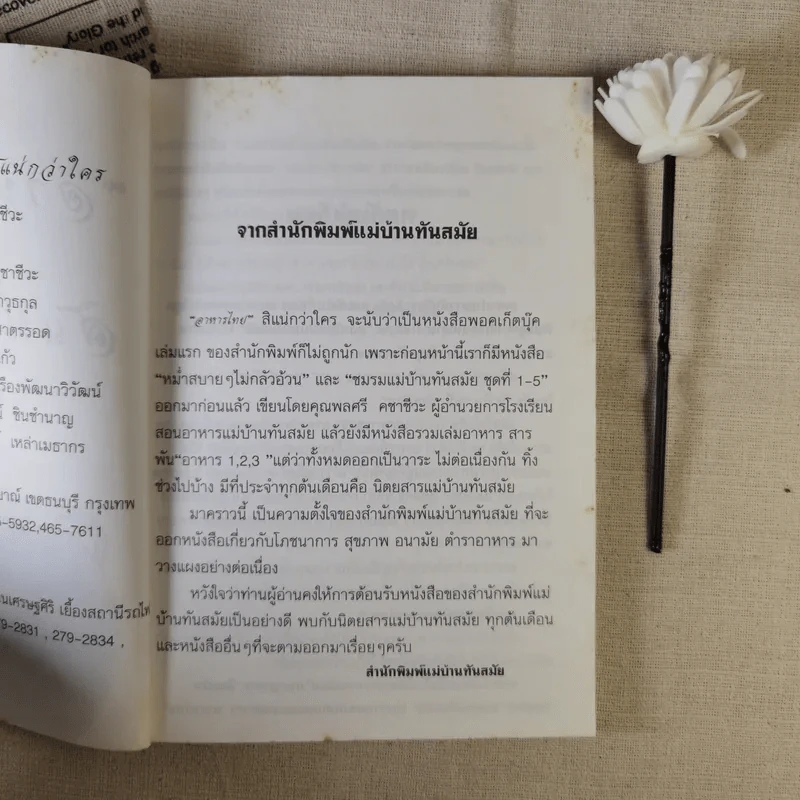 the Glory
แน่กว่าใคร
ชีวะ
คชาชีวะ
าวุธกุล
สาตรรอด
แก้ว
เรืองพัฒนาวิวัฒน์
ชินชำนาญ
เหล่าเมธากร
เขตธนบุรี กรุงเทพ
5932,465-7611
นเศรษฐศิริ เยื้องสถานีรถไฟ
79-2831 , 279-2834 ,
จากสำนักพิมพ์แม่บ้านทันสมัย
"อาหารไทย" สิแน่กว่าใคร จะนับว่าเป็นหนังสือพอคเก็ตบุ๊ค
เล่มแรก ของสำนักพิมพ์ก็ไม่ถูกนัก เพราะก่อนหน้านี้เราก็มีหนังสือ
"หม่ำสบายๆไม่กลัวอ้วน" และ "ชมรมแม่บ้านทันสมัย ชุดที่ 1-5"
ออกมาก่อนแล้ว เขียนโดยคุณพลศรี คชาชีวะ ผู้อำนวยการโรงเรียน
สอนอาหารแม่บ้านทันสมัย แล้วยังมีหนังสือรวมเล่มอาหาร สาร
พัน"อาหาร 1,2,3 "แต่ว่าทั้งหมดออกเป็นวาระ ไม่ต่อเนื่องกัน ทิ้ง
ช่วงไปบ้าง มีที่ประจำทุกต้นเดือนคือ นิตยสารแม่บ้านทันสมัย
มาคราวนี้ เป็นความตั้งใจของสำนักพิมพ์แม่บ้านทันสมัย ที่จะ
ออกหนังสือเกี่ยวกับโภชนาการ สุขภาพ อนามัย ตำราอาหาร มา
วางแผงอย่างต่อเนื่อง
หวังใจว่าท่านผู้อ่านคงให้การต้อนรับหนังสือของสำนักพิมพ์แม่
บ้านทันสมัยเป็นอย่างดี พบกับนิตยสารแม่บ้านทันสมัย ทุกต้นเดือน
และหนังสืออื่นๆที่จะตามออกมาเรื่อยๆครับ
สำนักพิมพ์แม่บ้านทันสมัย